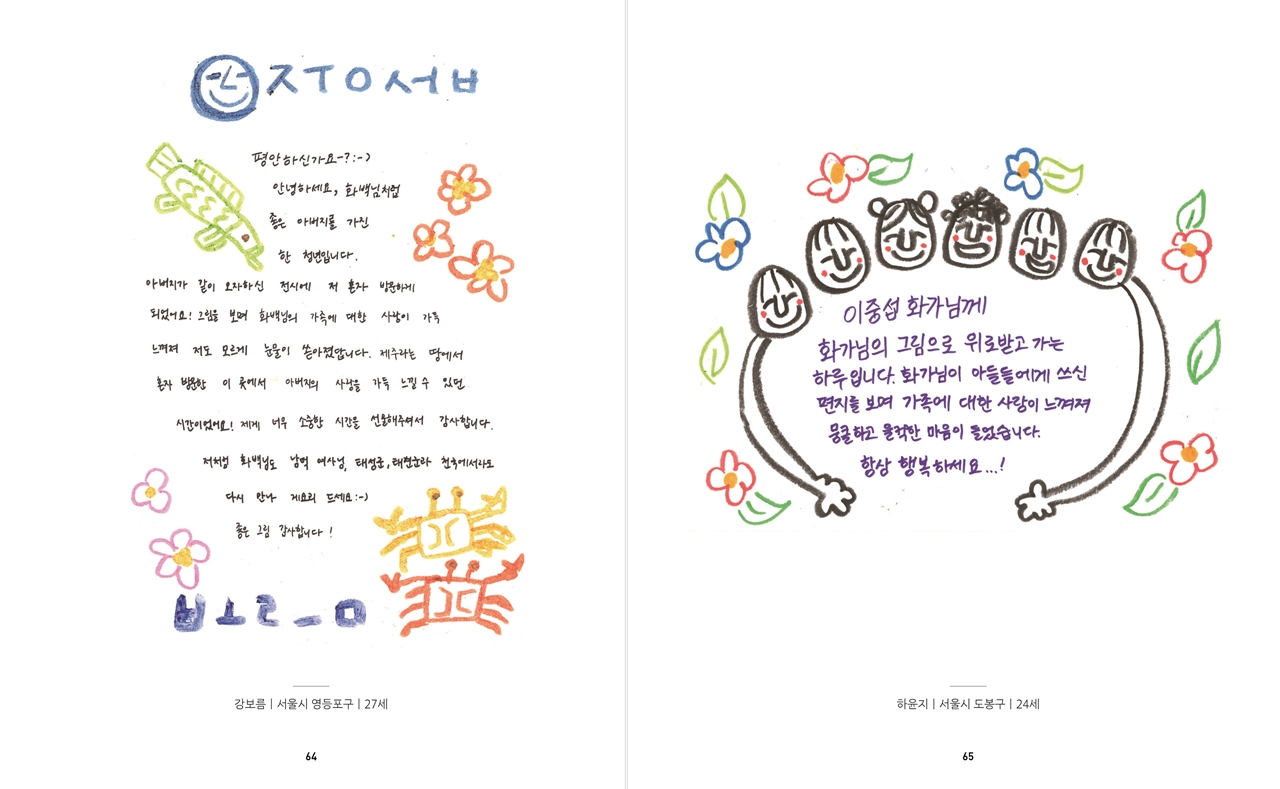 ㅈㅜㅇ서ㅂ
평안하신가요-?:-)
안녕하세요, 화백님처럼
좋은 아버지를 가진
한 청년입니다.
아버지가 같이 오자하신 전시에 저 혼자 방문하게
되었어요! 그림을 보며 화백님의 가족에 대한 사랑이 가득
느껴져 저도 모르게 눈물이 쏟아졌답니다. 제주라는 땅에서
혼자 방문한 이 곳에서 아버지의 사랑을 가득 느낄 수 있던
시간이었어요! 제게 너무 소중한 시간을 선물해주셔서 감사합니다.
저처럼 화백님도 남덕 여사님, 태성군, 태현군과 천국에서라도
다시 만나 게요리 드세요:-)
좋은 그림 감사합니다!
ㅂㅗㄹㅡㅁ
강보름 | 서울시 영등포구 | 27세
64
이중섭 화가님께
화가님의 그림으로 위로받고 가는
하루입니다. 화가님이 아들들에게 쓰신
편지를 보며 가족에 대한 사랑이 느껴져
뭉클하고 울컥한 마음이 들었습니다.
항상 행복하세요...!
하윤지 | 서울시 도봉구 | 24세
65